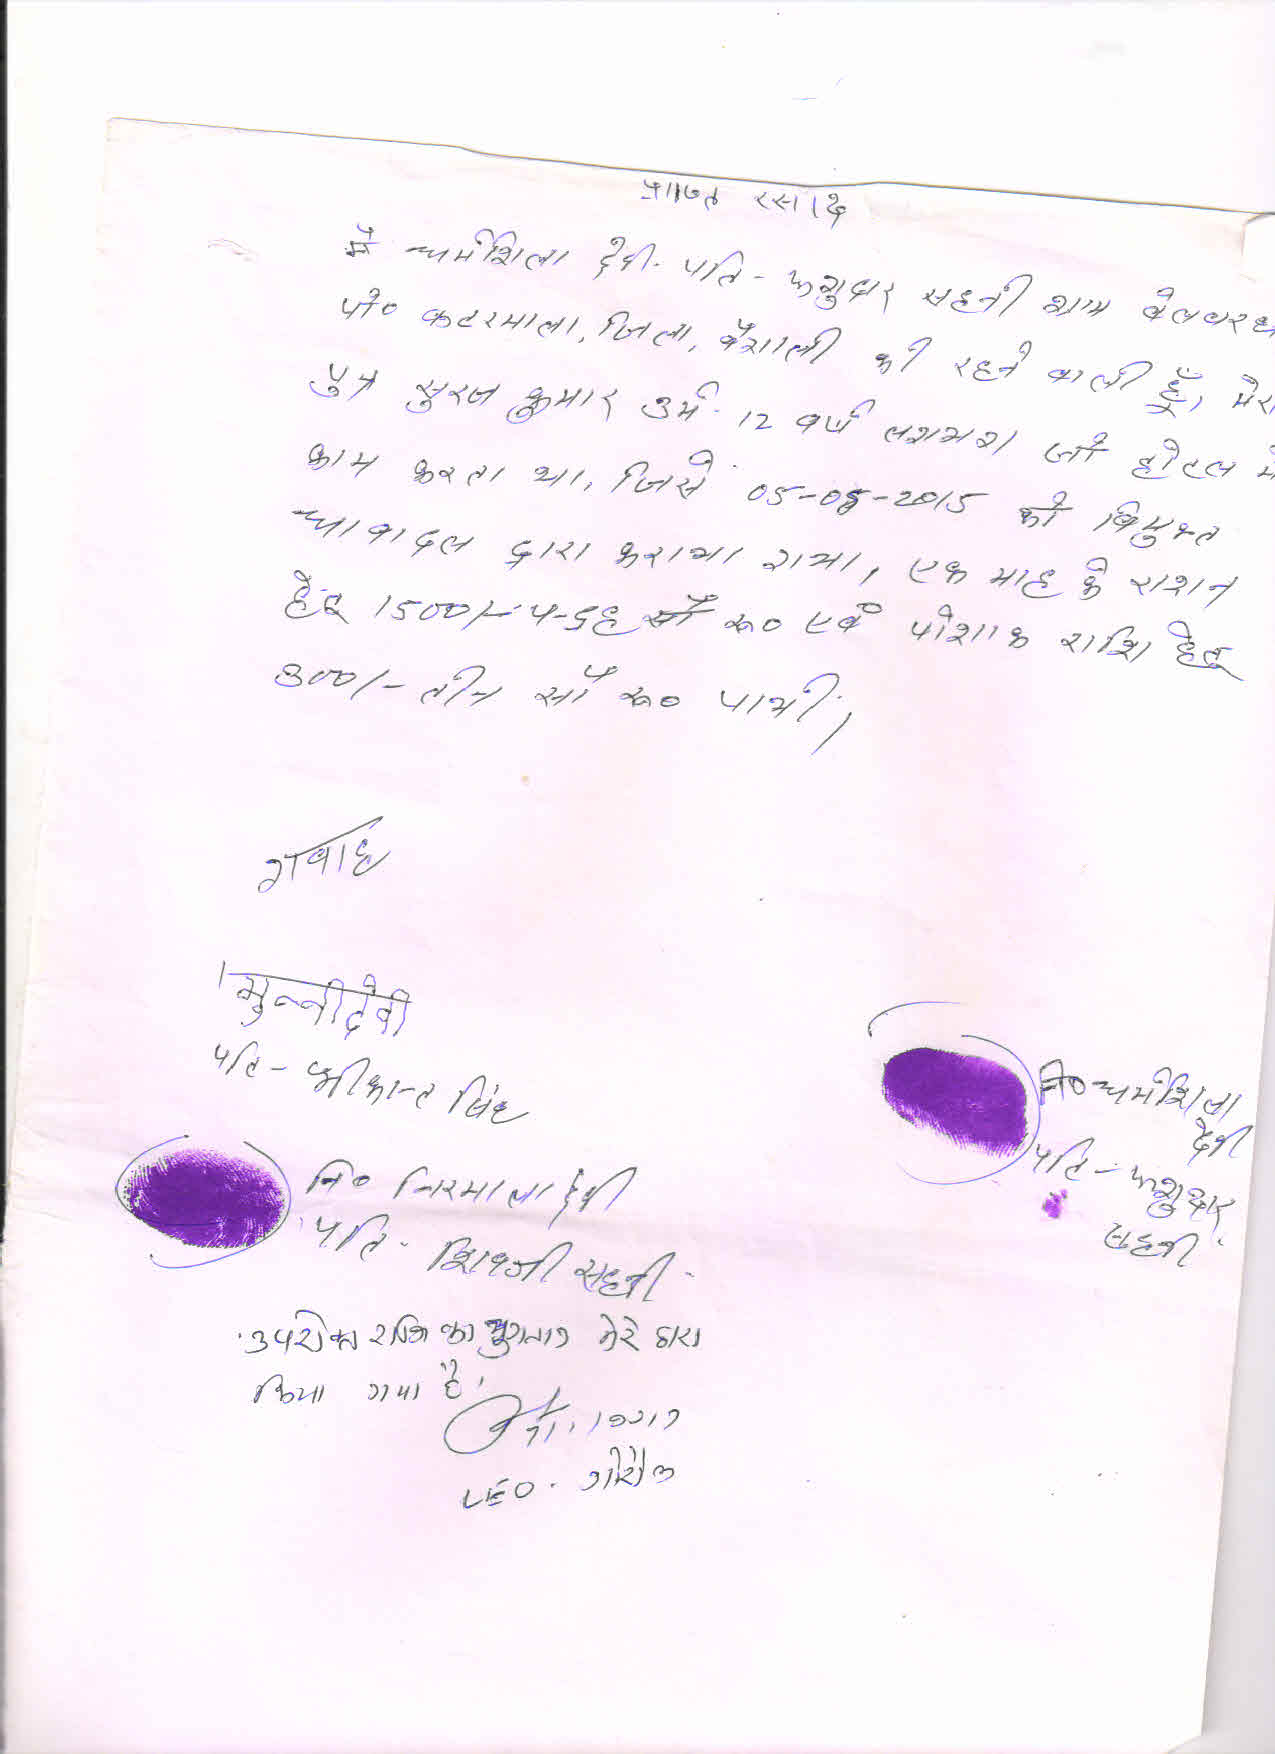 प्राप्त रसीद
मैं धर्मशिला देवी पति - फशुदार सहनी ग्राम वेलवरघ
पो० कटरमाला, जिला, वैशाली की रहने वाली हूँ, मेरा
पुत्र सुरज कुमार उर्म 12 वर्ष लगभग जो होटल में
काम करता था, जिसे 05-05-2015 को विमुक्त
धावादल द्वारा कराया गया, एक माह के राशन
हेतु 1500/- पन्द्रह सौ रू० एवं पोशाक राशि हेतु
300/- तीन सौ रू० पायी,
गवाह
मुन्नी देवी
पति - श्रीकान्त सिंह
नि० धर्मशिला
देवी
पति - फशुदार
सहनी
नि० निरमाला देवी
पति - शिवजी सहनी
उपरोक्त राशि का भुगतान मेरे द्वारा
किया गया है।
LEO. गोरौल